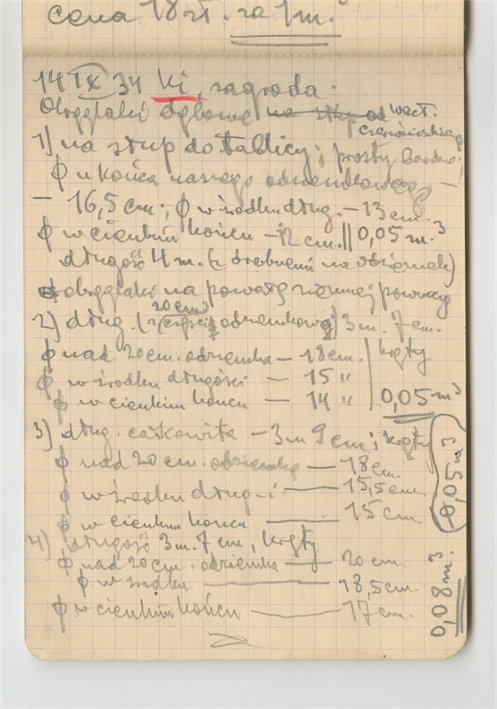 cena 18 zł. za 1 m.³
14 IX 34 Ki, zagroda.
Okrąglaki dębowe na słup od Wacł.
1) na słup do tablicy; prosty bardzo;
ϕ u końca naszego odziemkowego —
— 16,5 cm.; ϕ w środku dług. — 13 cm.
ϕ w cienkim końcu — 12 cm. || 0,05 m.³
długość 4 m. (z drobnemi na )
okrąglaki na powałę ziemnej piwnicy
2) dług. (z części odziemkowej) 3 m. 7 cm.
20 cm
ϕ nad 20 cm. odziemka — 18 cm. | kręty
ϕ w środku długości — 15 "
ϕ w cienkim końcu — 14 " | 0,05 m³
3) dług. całkowita — 3 m 9 cm; kręty
ϕ nad 20 cm. odziemka — 18 cm.
ϕ w środku dług-i — 15,5 cm.
ϕ w cienkim końcu — 15 cm.
0,05 m³
4) długość 3 m. 7 cm., kręty
ϕ nad 20 cm. odziemka — 20 cm.
ϕ w środku — 18,5 cm.
ϕ w cienkim końcu — 17 cm.
0,08 m³